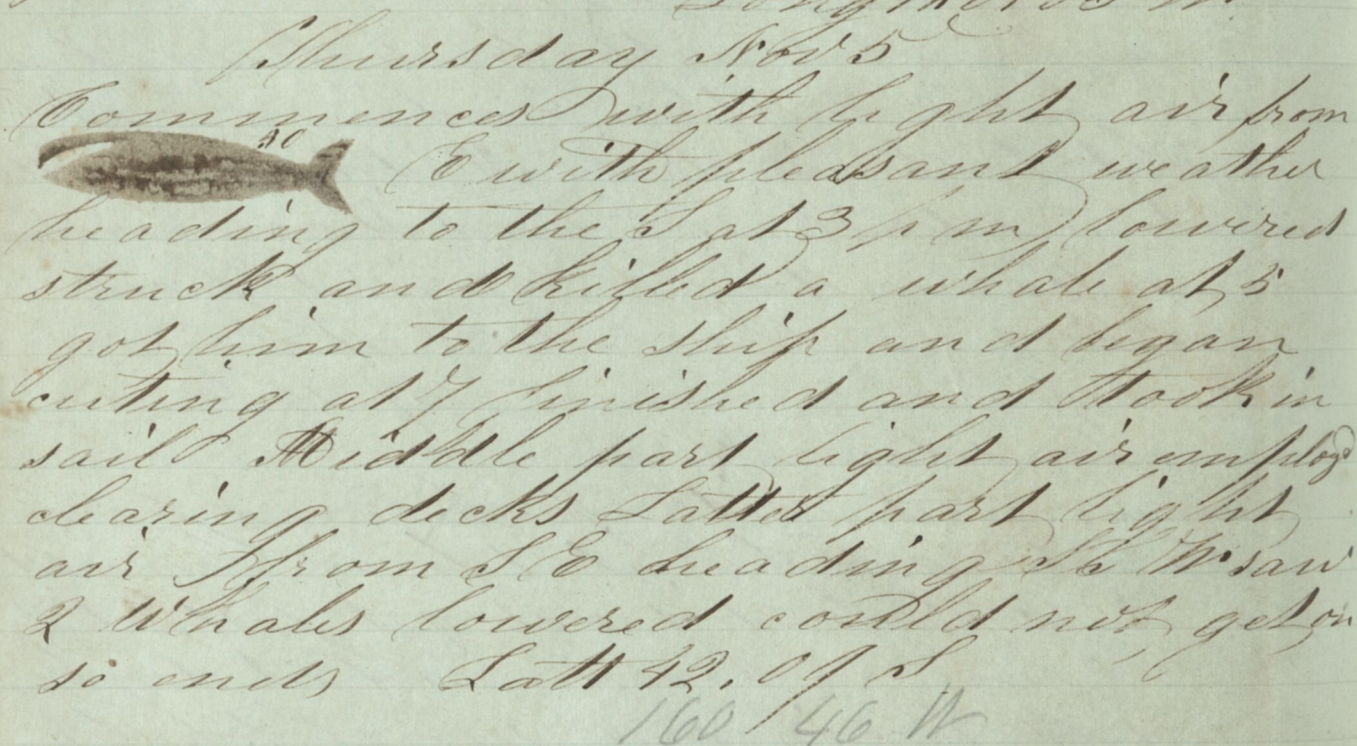 Thursday Nov 5
Commences with light air from
40
E with pleasant weather
heading to the S at 3 p m lowered
struck and killed a whale at 5
got him to the ship and began
cuting at 7 finished and took in
sail Middle part light air employd
clearing decks Latter part light
air from S E heading S W saw
2 Whales lowered could not get on
so ends Latt 42.09 S
160 46 W